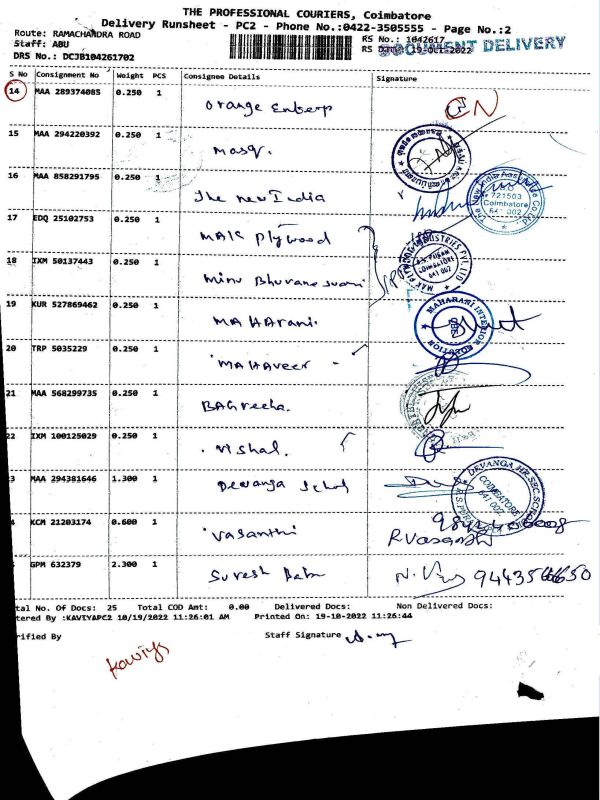 THE PROFESSIONAL COURIERS, Coimbatore
Delivery Runsheet - PC2 - Phone No.:0422-3505555 - Page No.:2
Route: RAMACHANDRA ROAD
Staff: ABU
RS No.: 1042617
RS Date: 19-Oct-2022
DOCUMENT DELIVERY
DRS No.: DCJB104261702
S No Consignment No Weight PCS Consignee Details Signature
14 MAA 289374085 0.250 1 Orange Enterp
15 MAA 294220392 0.250 1 Masq.
16 MAA 858291795 0.250 1 The new India
721503
Coimbatore
641 002
17 EDQ 25102753 0.250 1 MAK Plywood
18 IXM 50137443 0.250 1 Minu Bhuvaneswari
COIMBATORE
641 002
19 KUR 527869462 0.250 1 MAHArani.
MAHARANI INTERIOR
20 TRP 5035229 0.250 1 MAHAveer
21 MAA 568299735 0.250 1 BAGreeha.
22 IXM 100125029 0.250 1 Vishal.
3 MAA 294381646 1.300 1 Devanga School
DEVANGA HR.SEC.SCHOOL
COIMBATORE
641 002
KCM 21203174 0.600 1 Vasanthi
R.Vasanthi
GPM 632379 2.300 1 Suresh Babu
tal No. Of Docs: 25 Total COD Amt: 0.00 Delivered Docs: Non Delivered Docs:
tered By :KAVIYAPC2 10/19/2022 11:26:01 AM Printed On: 19-10-2022 11:26:44
rified By Staff Signature
Kaviya